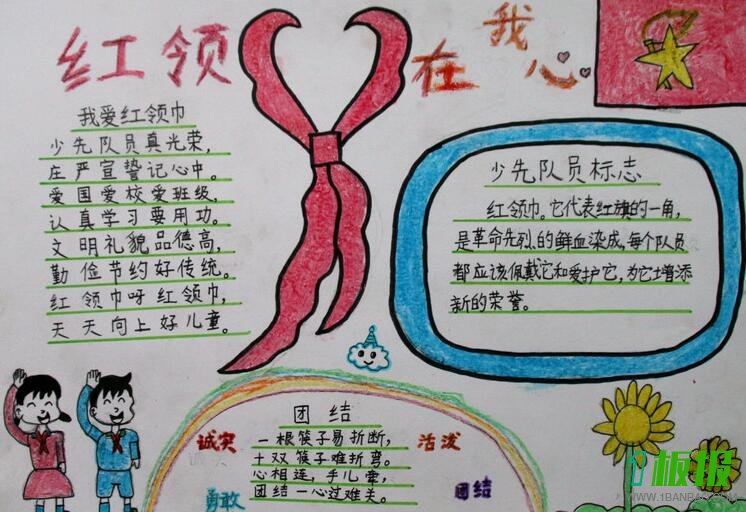 红领 在我心
我爱红领巾
少先队员真光荣,
庄严宣誓记心中。
爱国爱校爱班级,
认真学习要用功。
文明礼貌品德高,
勤俭节约好传统。
红领巾呀红领巾,
天天向上好儿童。
少先队员标志
红领巾。它代表红旗的一角,
是革命先烈的鲜血染成,每个队员
都应该佩戴它和爱护它,为它增添
新的荣誉。
团结
一根筷子易折断,
十双筷子难折弯。
心相连,手儿牵,
团结一心过难关。
诚实
活泼
勇敢
团结
板报
WWW.1BANBAO.COM